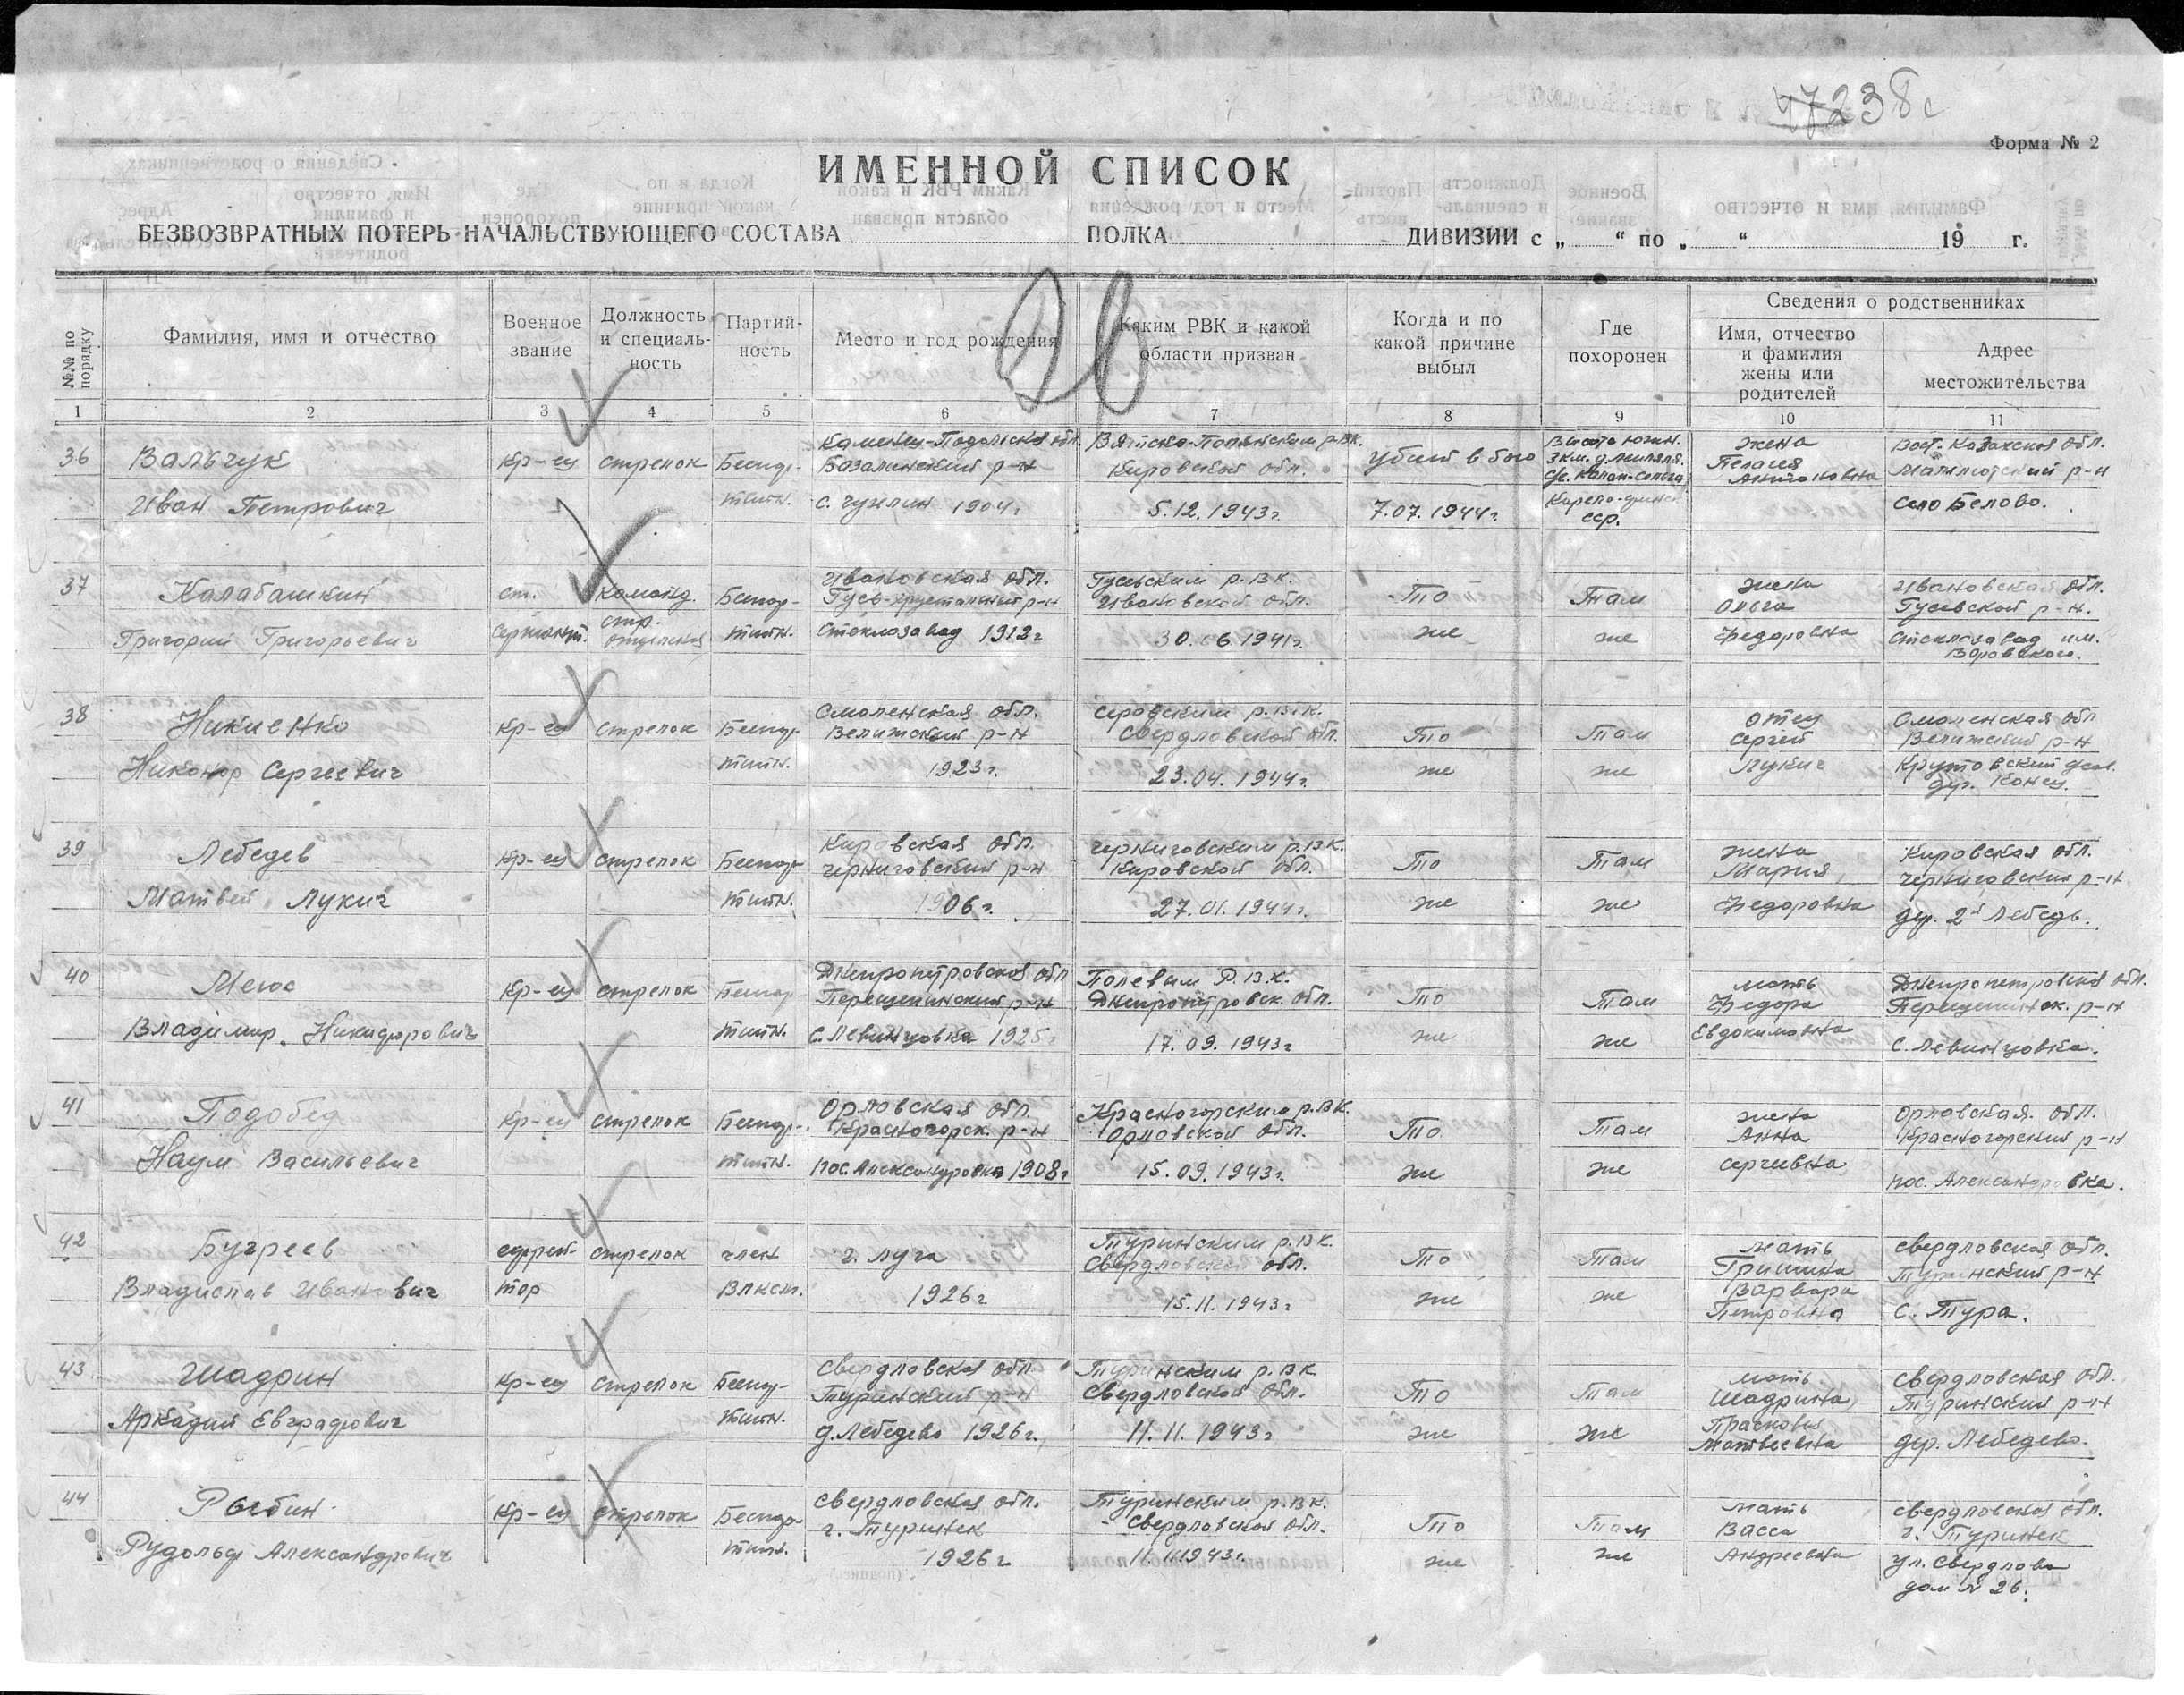 47238с
Форма № 2
ИМЕННОЙ СПИСОК
БЕЗВОЗВРАТНЫХ ПОТЕРЬ НАЧАЛЬСТВУЮЩЕГО СОСТАВА ПОЛКА ДИВИЗИИ с „ “ по „ “ 19 г.
№№ по порядку
Фамилия, имя и отчество
Военное звание
Должность и специаль-ность
Партий-ность
Место и год рождения
Каким РВК и какой области призван
Когда и по какой причине выбыл
Где похоронен
Сведения о родственниках
Имя, отчество и фамилия жены или родителей
Адрес местожительства
1 2 3 4 5 6 7 8 9 10 11
36 Вальчук кр-ец стрелок Беспар- Каменец-Подольская обл. Базалийский р-н Вятско-Полянским р.в.к. Кировской обл. убит в бою Высота южн. 3 км. д. жена Пелагея Антоновна Вост. Казахская обл. р-н
Иван Петрович тийн. 1904г. 5.12.1943г. 7.07.1944г. Карело-финск. сср. село Белово.
37 Калабашкин ст. Команд. Беспар- Ивановская обл. Гусь-хрустальный р-н Гусевским р.в.к. Ивановской обл. То Там жена Ольга Ивановская обл. Гусевской р-н.
Григорий Григорьевич сержант. стр. отделения тийн. Стеклозавод 1912г 30.06.1941г. же же Федоровна Стеклозавод им. Воровского.
38 Никиенко кр-ец стрелок Беспар- Смоленская обл. Велижский р-н Серовским р.в.к. Свердловской обл. То Там отец Сергей Смоленская обл Велижский р-н
Никонор Сергеевич тийн. 1923г. 23.04.1944г. же же Лукич Крутовский дер. Конец.
39 Лебедев кр-ец стрелок Беспар- Кировская обл. Черниговский р-н Черниговским р.в.к. Кировской обл. То Там жена Мария Кировская обл. Черниговский р-н
Матвей Лукич тийн. 1906г. 27.01.1944г. же же Федоровна дер. 2й Лебедь.
40 Мегос кр-ец стрелок Беспар- Днепропетровская обл Перещепинский р-н Полевым Р.В.К. Днепропетровск. обл. То Там мать Федора Днепропетровская обл. Перещепинск. р-н
Владимир Никифорович тийн. с. Левинцовка 1925г 17.09.1943г же же Евдокимовна с. Левинцовка.
41 Подобед кр-ец стрелок Беспар- Орловская обл. Красногорск. р-н Красногорским р.в.к. Орловской обл. То Там жена Анна Орловская. обл. Красногорский р-н
Наум Васильевич тийн. пос. Александровка 1908г 15.09.1943г. же же Сергеевна пос. Александровка.
42 Бугреев ефрей- стрелок член г. Луга Туринским р.в.к. Свердловской обл. То Там мать Гришина Свердловская обл. Туринский р-н
Владислав Иванович тор Влксм. 1926г 15.11.1943г же же Варвара Петровна с. Тура.
43 Шадрин кр-ец стрелок Беспар- Свердловская обл. Туринский р-н Туринским р.в.к Свердловской обл. То Там мать Шадрина Свердловская обл. Туринский р-н
Аркадий Евграфович тийн. д. Лебедево 1926г. 11.11.1943г же же Прасковья Матвеевна дер. Лебедево.
44 Рыбин кр-ец стрелок Беспар- Свердловская обл. г. Туринск Туринским р.в.к. Свердловской обл. То Там мать Васса Свердловская обл. г. Туринск
Рудольф Александрович тийн. 1926г 11.11.1943г. же же Андреевна ул. Свердлова дом № 26.